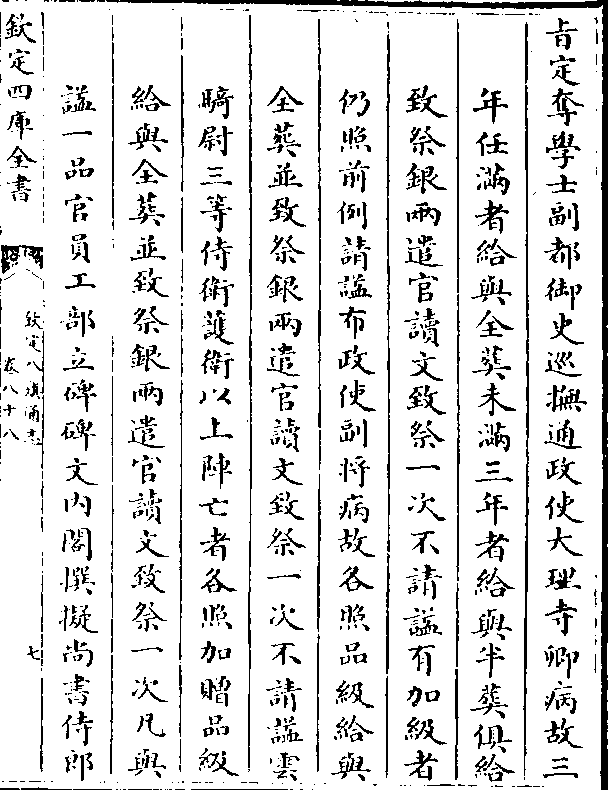 旨定奪學士副都御史巡撫通政使大理寺卿病故三
年任滿者給與全葬未滿三年者給與半葬俱給
致祭銀兩遣官讀文致祭一次不請諡有加級者
仍照前例請諡布政使副將病故各照品級給與
全葬並致祭銀兩遣官讀文致祭一次不請諡雲
騎尉三等侍衛護衛以上陣亡者各照加贈品級
給與全葬並致祭銀兩遣官讀文致祭一次凡與
諡一品官員工部立碑碑文内閣撰擬尚書侍郎
欽定四庫全書
欽定八旗通志
卷八十八
七